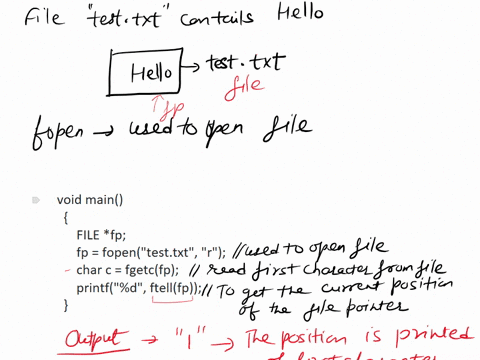 File "test.txt" contails Hello
Hello → test.txt
↑fp file
fopen → used to open file
void main()
{
FILE *fp;
fp = fopen("test.txt", "r"); //used to open file
char c = fgetc(fp); // read first character from file
printf("%d", ftell(fp)); // To get the current position
} of the file pointer
Output → "1" → The position is printed
of first character